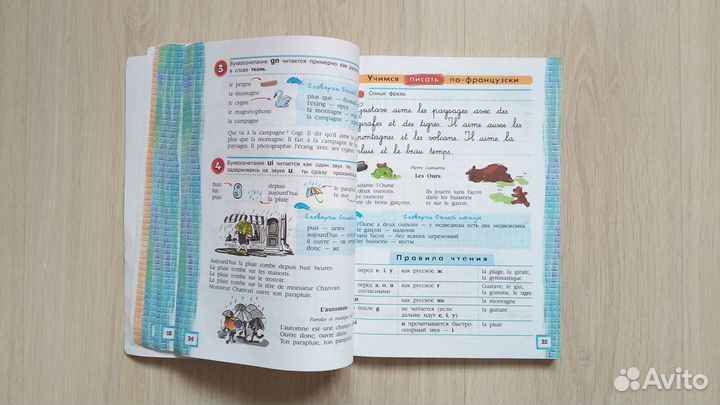 3 Буквосочетание gn читается примерно как
в слове ткань.
le peigne
la montagne
le cygne
le magnétophone
la campagne
Словарик Синей
plus que —
l'étang — пруд
la montagne —
la campagne —
Qui va à la campagne? Gigi. Il dit qu'il aime
plus que la montagne. Il fait à la campagne de
paysages. Il photographie l'étang avec ses cygnes.
4 Буквосочетание ui читается как один звук. Не
задерживаясь на звуке u, ты сразу
huit
lui
puis
depuis
aujourd'hui
la pluie
le
la
Словарик Синей
puis — затем
aujourd'hui —
il ouvre — он
depuis —
Aujourd'hui la pluie tombe depuis huit heures
La pluie tombe sur les maisons
La pluie tombe sur le trottoir
La pluie tombe sur la tête de monsieur Charivari.
Monsieur Charivari ouvre son parapluie.
L'automne
Paroles et musique
L'automne est une
Ouvre donc, ouvre donc
Ton parapluie, ton parapluie
18
34
Учимся писать по-французски
Спиши фразы.
Gustave aime les paysages avec des
girafes et des tigres. Il aime aussi les
montagnes et les volcans. Il aime la
pluie et le beau temps.
Pierre Gamarra
Les Ours
Madame l'Ourse
deux oursons
de bons garçons.
Ils jouent sans façon
dans les buissons
et sur le gazon.
Словарик Синей птицы
l'Ourse a deux oursons — у медведицы есть два медвежонка
garçon — мальчик
sans façon — без всяких церемоний
les buissons — кусты
Правила чтения
перед e, i, y
как русское ж
la plage, la girafe,
la gymnastique
перед a, o, u
согласными
как русское г
Gustave, le gaz,
la gomme, le tigre
как русское нь
la montagne
после g
не читается (если
дальше идут e, i, y)
la guitare
u прочитывается быстро,
опорный звук — i
35
Avito